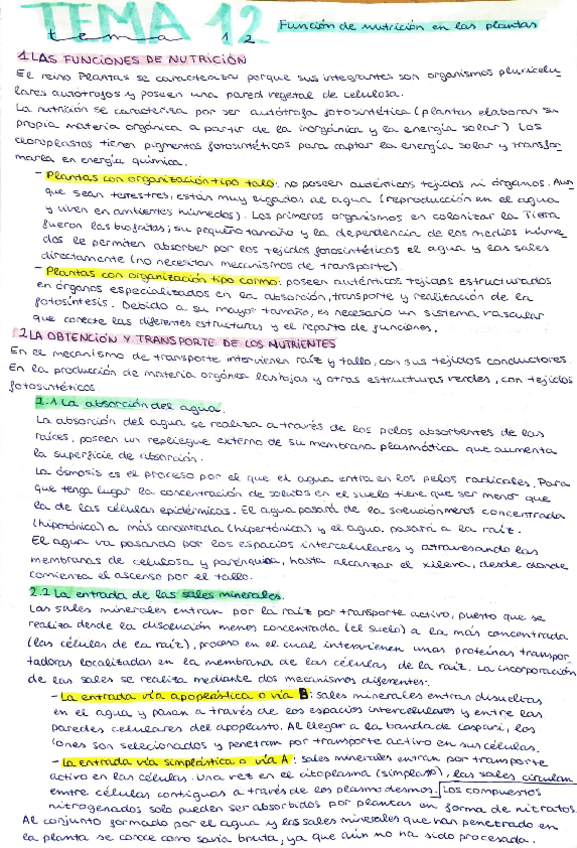 TEMA 12
tema 12
Función de nutrición en las plantas
1 LAS FUNCIONES DE NUTRICIÓN
El reino Plantas se caracteriza porque sus integrantes son organismos pluricelu-
lares autótrofos y poseen una pared vegetal de celulosa.
La nutrición se caracteriza por ser autótrofa fotosintética (plantas elaboran su
propia materia orgánica a partir de la inorgánica y la energía solar) Los
cloroplastos tienen pigmentos fotosintéticos para captar la energía solar y transfor-
marla en energía química.
- Plantas con organización tipo talo: no poseen auténticos tejidos ni órganos. Aun-
que sean terrestres, están muy ligados al agua (reproducción en el agua
y viven en ambientes húmedos). Los primeros organismos en colonizar la Tierra
fueron las biofitas; su pequeño tamaño y la dependencia de los medios húme-
dos le permiten absorber por los tejidos fotosintéticos el agua y las sales
directamente (no necesitan mecanismos de transporte)
- Plantas con organización tipo cormo: poseen auténticos tejidos estructurados
en órganos especializados en la absorción, transporte y realización de la
fotosíntesis. Debido a su mayor tamaño, es necesario un sistema vascular
que conecte las diferentes estructuras y el reparto de funciones.
2 LA OBTENCIÓN Y TRANSPORTE DE LOS NUTRIENTES
En el mecanismo de transporte intervienen raíz y tallo, con sus tejidos conductores.
En la producción de materia orgánica las hojas y otras estructuras verdes, con tejidos
fotosintéticos
2.1 La absorción del agua.
La absorción del agua se realiza a través de los pelos absorbentes de las
raíces, poseen un repliegue externo de su membrana plasmática que aumenta
la superficie de absorción.
La ósmosis es el proceso por el que el agua entra en los pelos radicales. Para
que tenga lugar la concentración de solutos en el suelo tiene que ser menor que
la de las células epidérmicas. El agua pasará de la solución menos concentrada
(hipotónica) a más concentrada (hipertónica) y el agua pasará a la raíz.
El agua va pasando por los espacios intercelulares y atravesando las
membranas de celulosa y parénquima, hasta alcanzar el xilema, desde donde
comienza el ascenso por el tallo.
2.2 La entrada de las sales minerales.
Las sales minerales entran por la raíz por transporte activo, puesto que se
realiza desde la disolución menos concentrada (el suelo) a la más concentrada
(las células de la raíz), proceso en el cual intervienen unas proteínas transpor-
tadoras localizadas en la membrana de las células de la raíz. La incorporación
de las sales se realiza mediante dos mecanismos diferentes:
- La entrada vía apoplástica o vía B: sales minerales entran disueltas
en el agua y pasan a través de los espacios intercelulares y entre las
paredes celulares del apoplasto. Al llegar a la banda de Caspari, los
iones son selecionados y penetran por transporte activo en sus células.
- La entrada vía simplástica o vía A: sales minerales entran por transporte
activo en las células. Una vez en el citoplasma (simplasto), las sales circulan
entre células contiguas a través de los plasmodesmos. Los compuestos
nitrogenados solo pueden ser absorbidos por plantas en forma de nitratos.
Al conjunto formado por el agua y las sales minerales que han penetrado en
la planta se conoce como savia bruta, ya que aún no ha sido procesada.